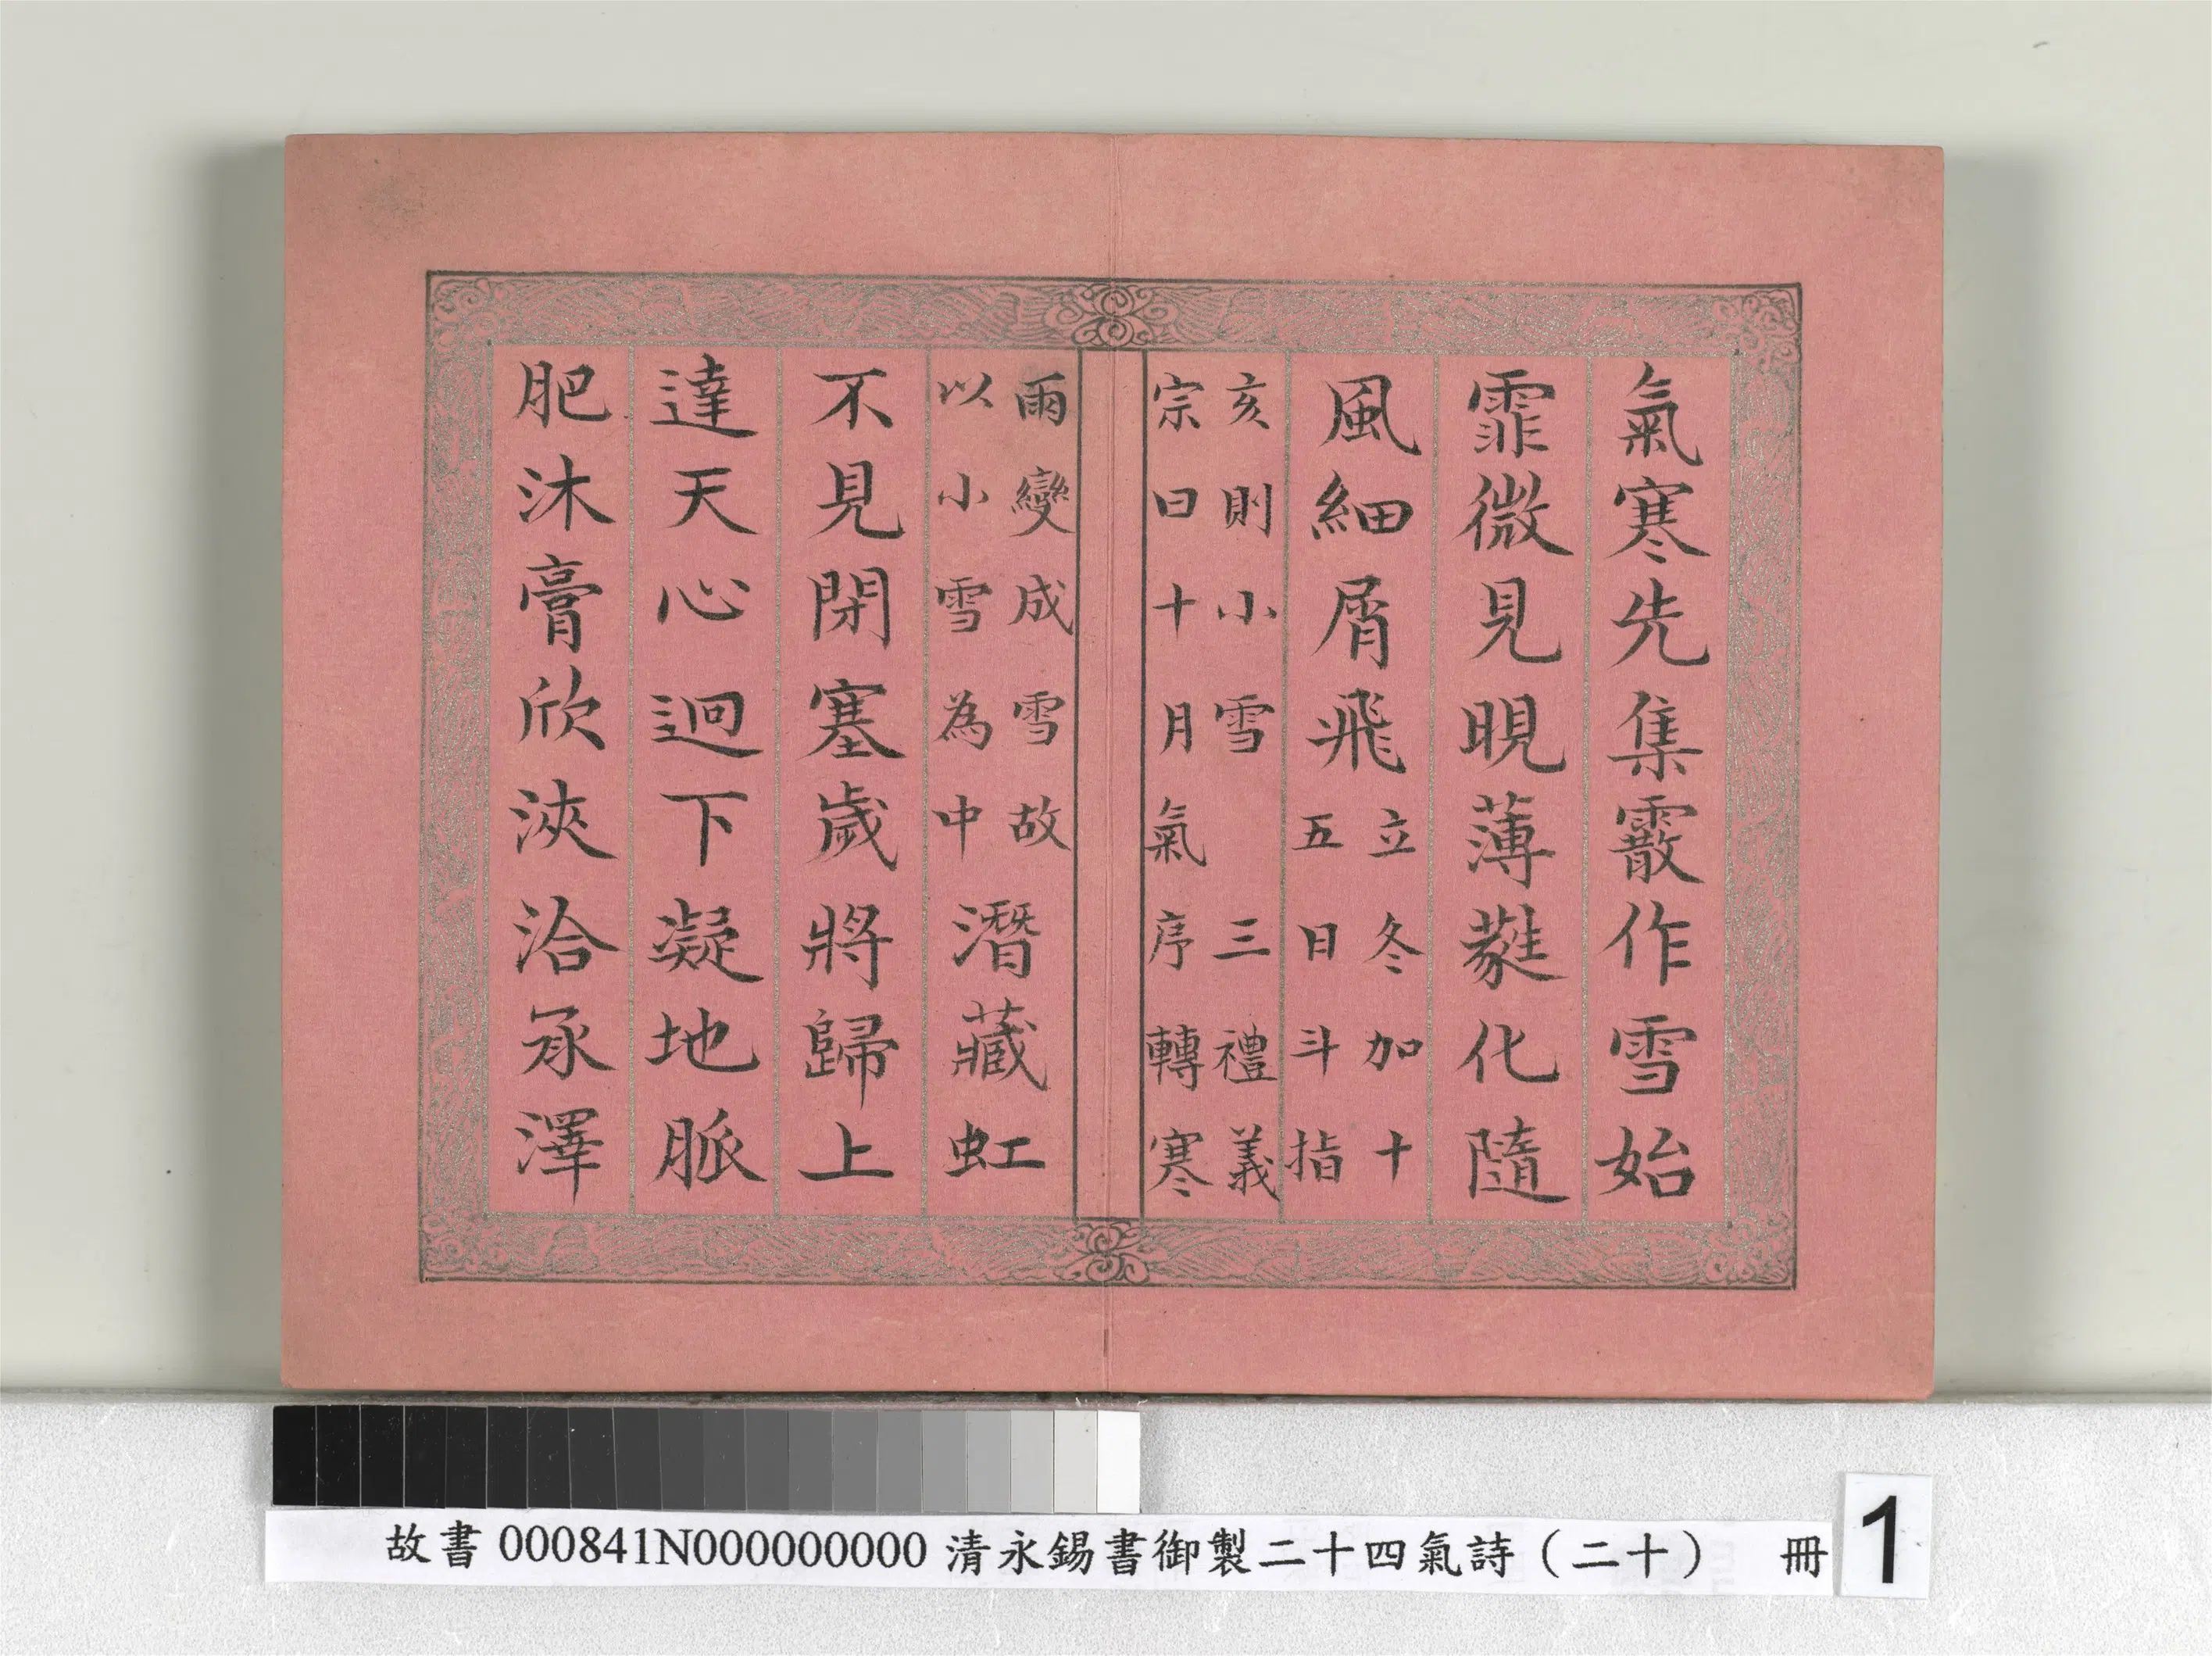 氣寒先集霰作雪始
霏微見晛薄蕤化隨
風細屑飛
立冬加十
五日斗指
亥則小雪 三禮義
宗曰十月氣序轉寒
雨變成雪故
以小雪為中
潛藏虹
不見閉塞歲將歸上
達天心迴下凝地脈
肥沐膏欣浹洽承澤
故書000841N000000000清永錫書御製二十四氣詩（二十） 冊
1